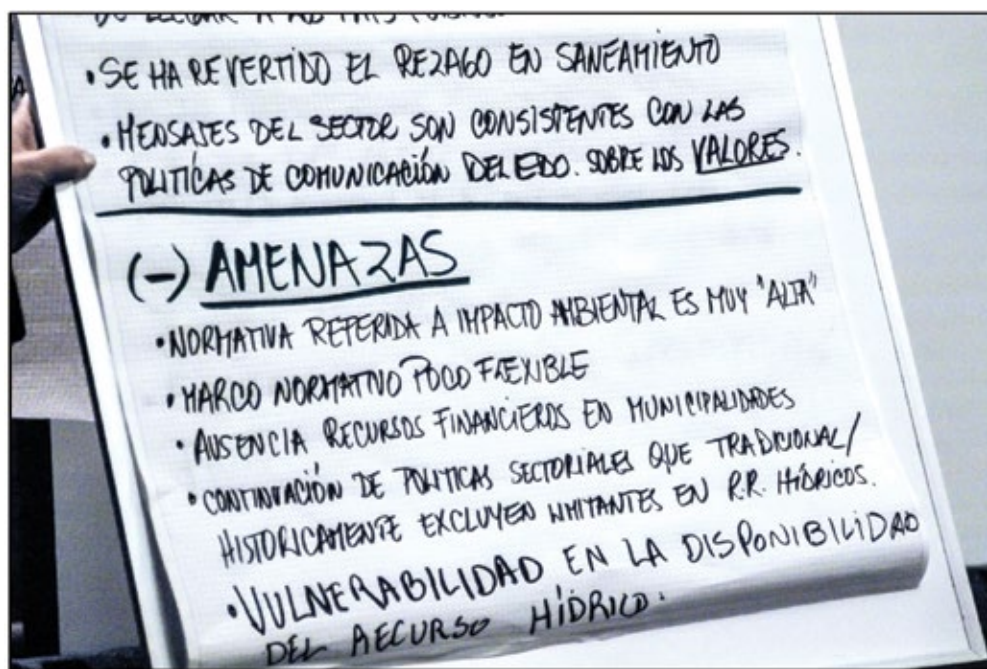 • SE HA REVERTIDO EL REZAGO EN SANEAMIENTO
• MENSAJES DEL SECTOR SON CONSISTENTES CON LAS
POLITÍCAS DE COMUNICACIÓN DEL EDO. SOBRE LOS VALORES.
(-) AMENAZAS
• NORMATIVA REFERIDA A IMPACTO AMBIENTAL ES MUY "ALTA"
• MARCO NORMATIVO POCO FLEXIBLE
• AUSENCIA RECURSOS FINANCIEROS EN MUNICIPALIDADES
• CONTINUACIÓN DE POLITICAS SECTORIALES QUE TRADICIONAL/
HISTORICAMENTE EXCLUYEN LIMITANTES EN R.R. HÍDRICOS.
• VULNERABILIDAD EN LA DISPONIBILIDAD
DEL RECURSO HÍDRICO.